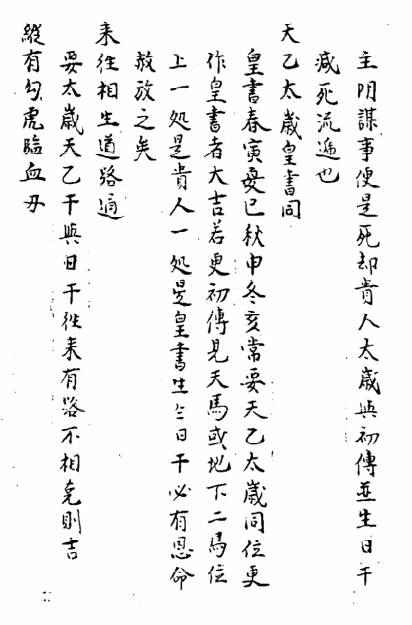 主阴謀事便是死却貴人太歲與初傳並生日干
減死流逓也
天乙太歲皇書同
皇書春寅夏巳秋申冬亥常要天乙太歲同位更
作皇書者大吉若更初傳見天馬或地下二馬位
上一処是貴人一処是皇書生今日干必有恩命
赦放之矣
来往相生道路通
要太歲天乙干與日干徃来有路不相克則吉
縱有勾虎臨血刃